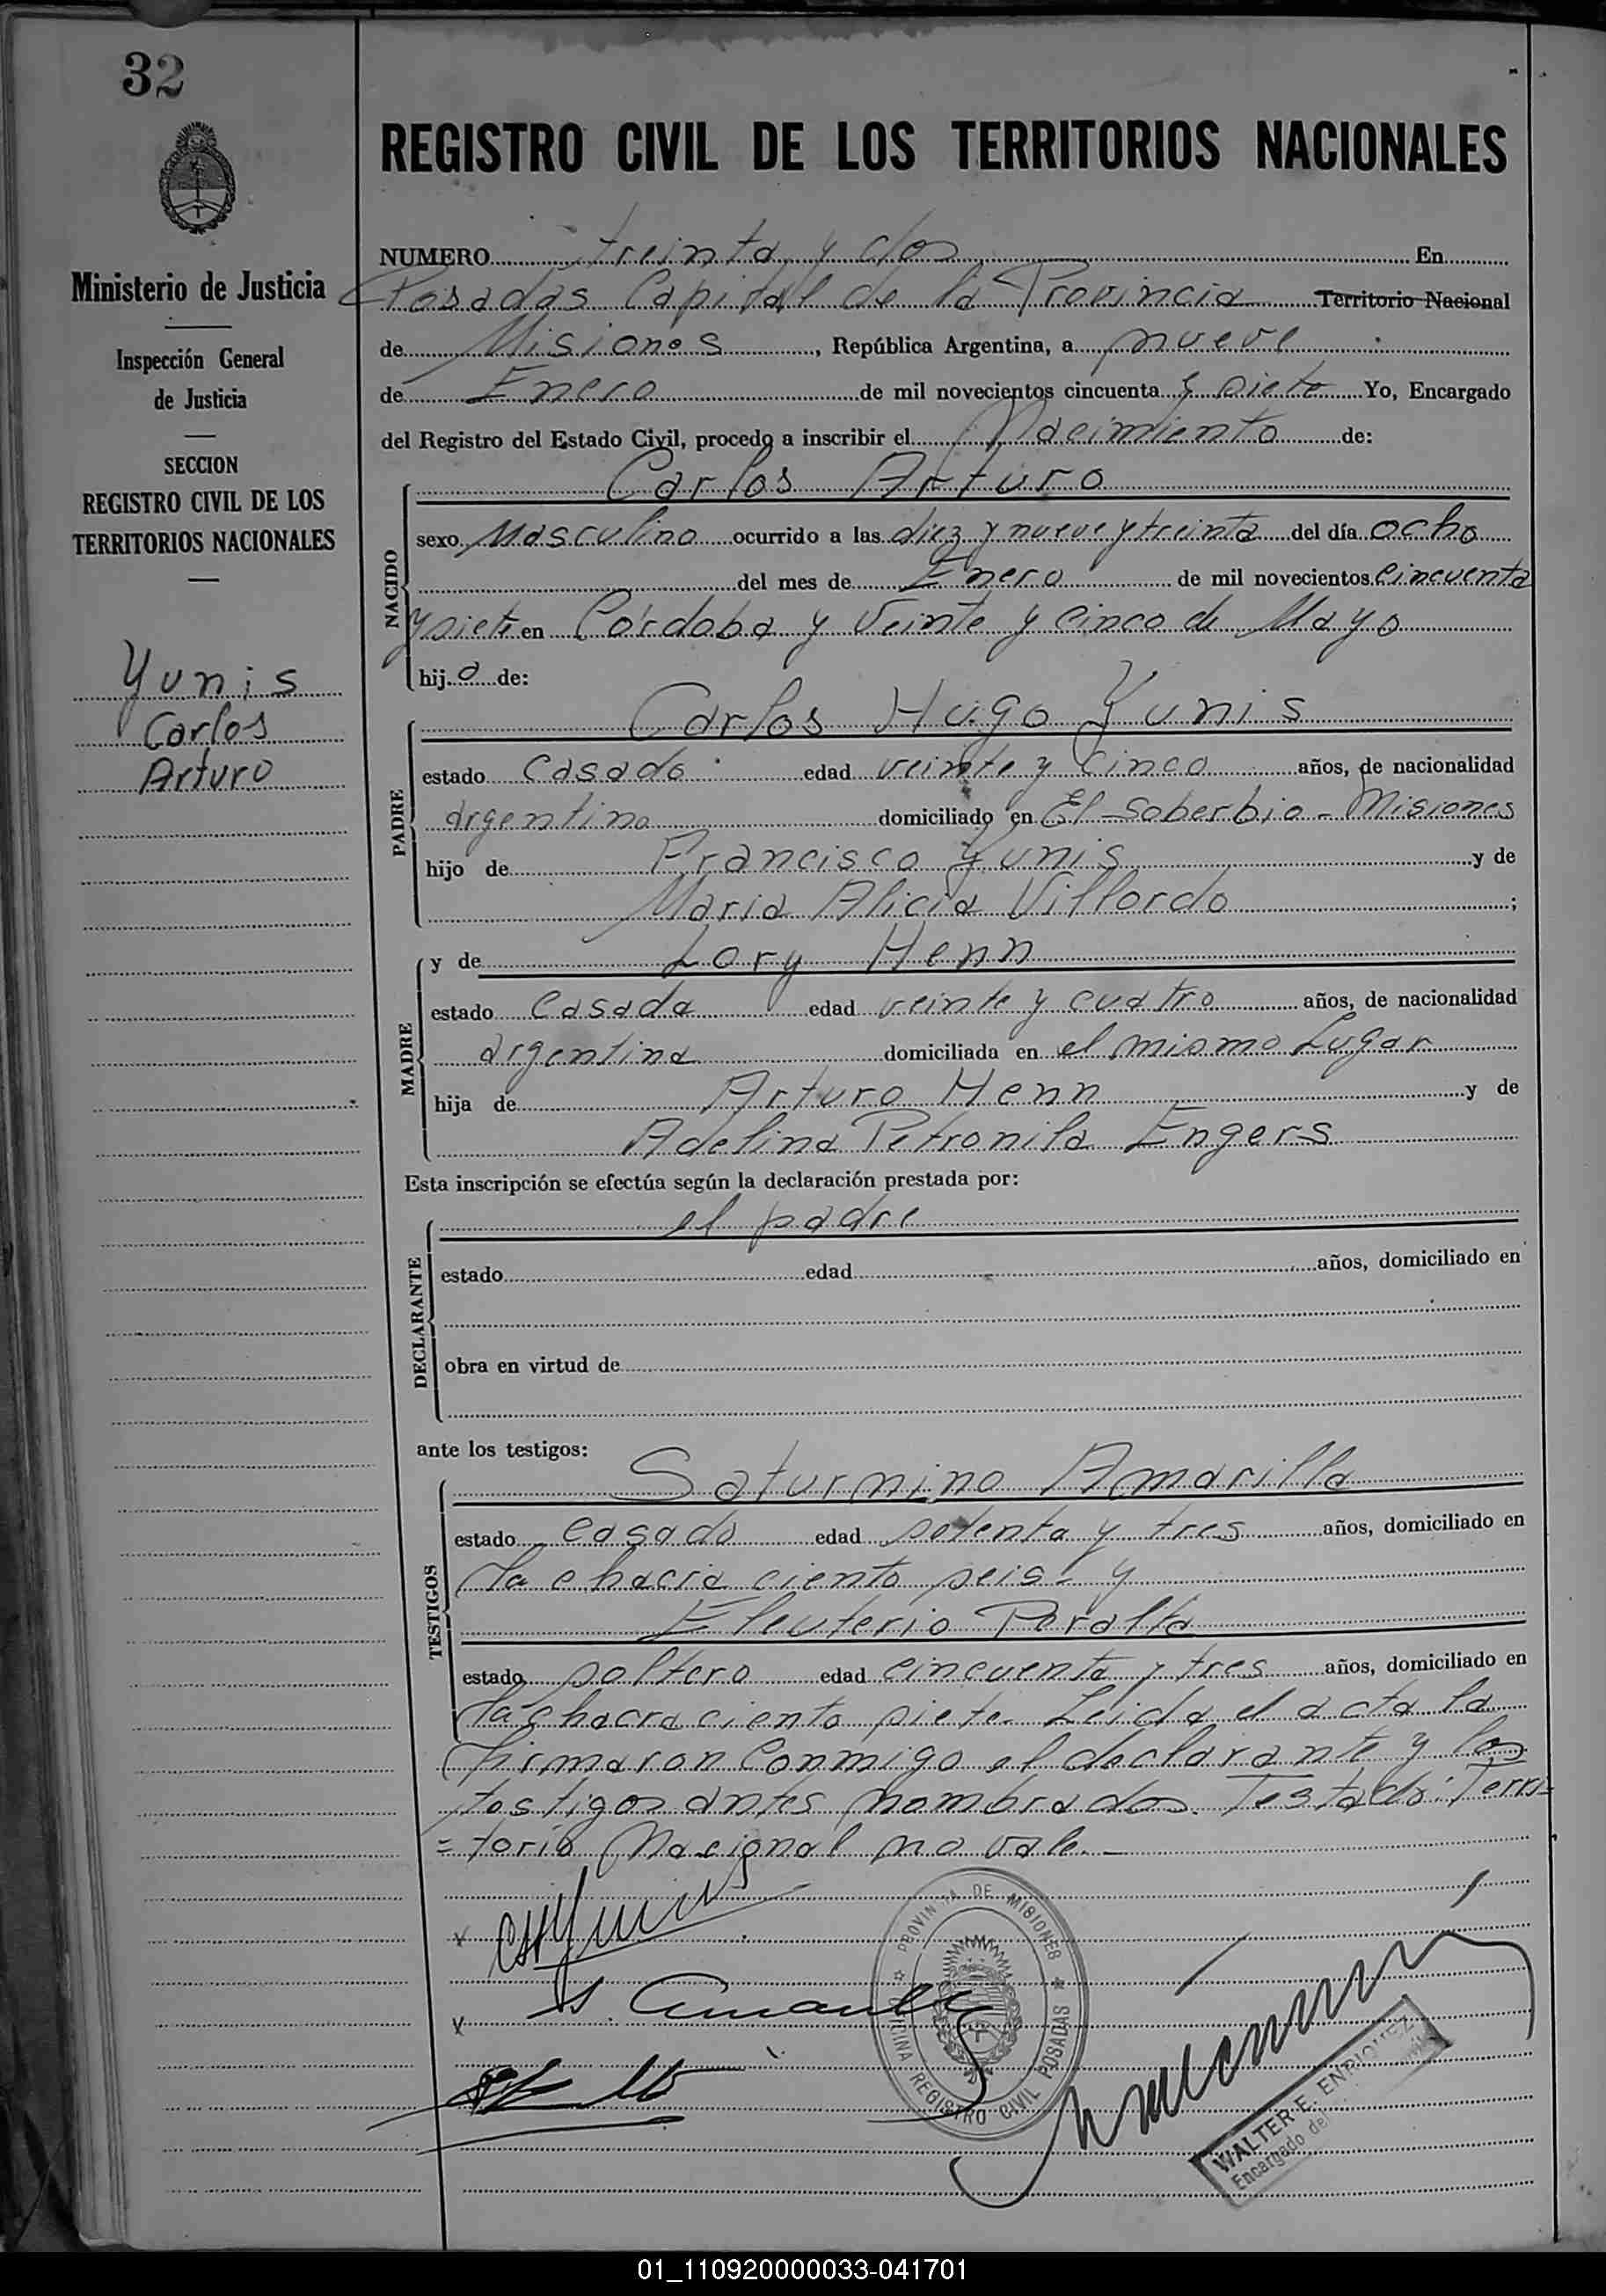 32
REGISTRO CIVIL DE LOS TERRITORIOS NACIONALES
Ministerio de Justicia
Inspección General
de Justicia
SECCION
REGISTRO CIVIL DE LOS
TERRITORIOS NACIONALES
Yunis
Carlos
Arturo
NUMERO treinta y dos En
Posadas Capital de la Provincia Territorio Nacional
de Misiones, República Argentina, a nueve
de Enero de mil novecientos cincuenta y siete Yo, Encargado
del Registro del Estado Civil, procedo a inscribir el Nacimiento de:
NACIDO
Carlos Arturo
sexo Masculino ocurrido a las diez y nueve y treinta del día ocho
del mes de Enero de mil novecientos cincuenta
y siete en Córdoba y Veinte y cinco de Mayo
hijo de:
PADRE
Carlos Hugo Yunis
estado casado edad veinte y cinco años, de nacionalidad
argentina domiciliado en El Soberbio - Misiones
hijo de Francisco Yunis y de
Maria Alicia Villordo;
MADRE
y de Lory Henn
estado casada edad veinte y cuatro años, de nacionalidad
argentina domiciliada en el mismo Lugar
hija de Arturo Henn y de
Adelina Petronila Engers
Esta inscripción se efectúa según la declaración prestada por:
DECLARANTE
el padre
estado edad años, domiciliado en
obra en virtud de
ante los testigos:
TESTIGOS
Saturnino Amarilla
estado casado edad setenta y tres años, domiciliado en
la chacra ciento seis - y
Eleuterio Peralta
estado soltero edad cincuenta y tres años, domiciliado en
la chacra ciento siete. Leida el acta la
firmaron conmigo el declarante y los
testigos antes nombrados. Testado: Terri=
=torio Nacional no vale.-
CHYunis
S. Amarilla
PROVINCIA DE MISIONES
OFICINA REGISTRO CIVIL POSADAS
WALTER E. ENRIQUEZ
Encargado del
01_110920000033-041701